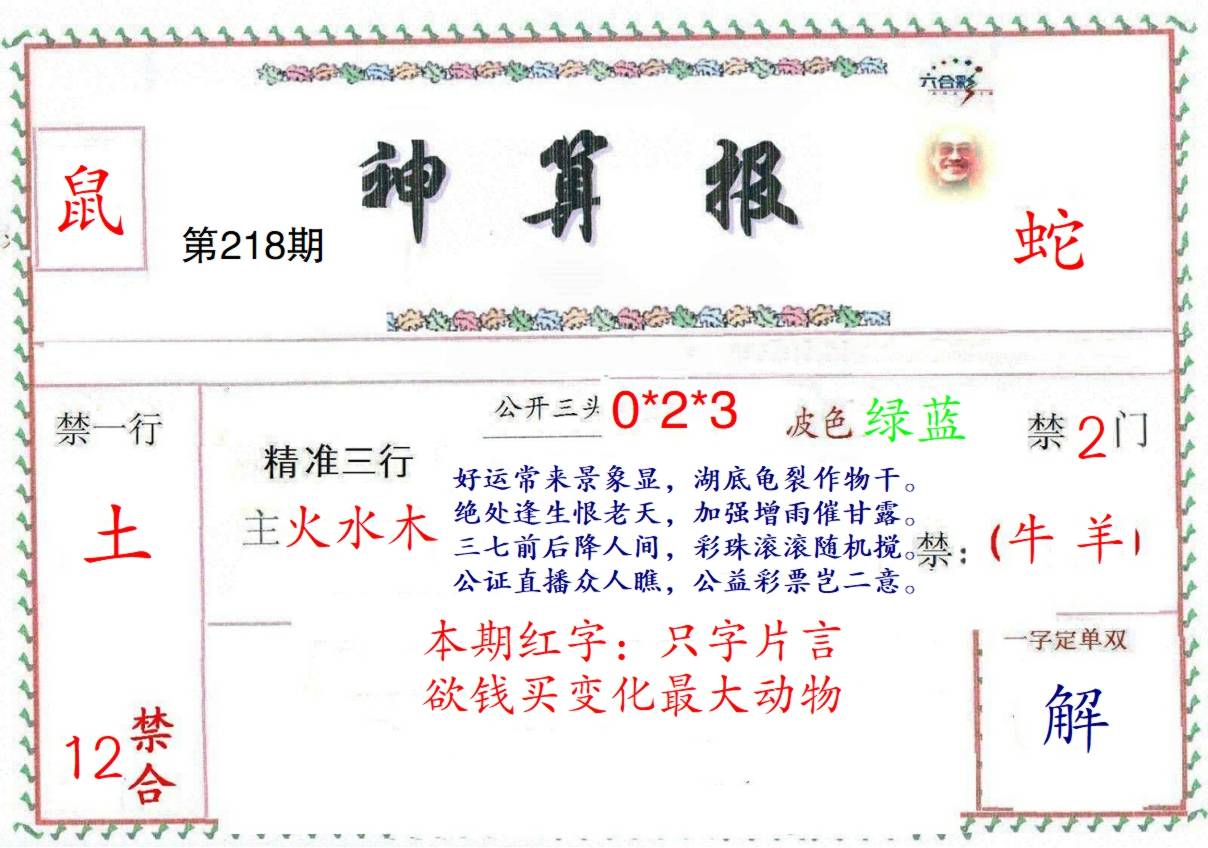 六合彩
神算报
鼠
第218期
蛇
禁一行
土
12禁合
精准三行
主火水木
公开三头 0*2*3
波色 绿蓝
禁2门
禁：（牛 羊）
好运常来景象显，湖底龟裂作物干。
绝处逢生恨老天，加强增雨催甘露。
三七前后降人间，彩珠滚滚随机搅。
公证直播众人瞧，公益彩票岂二意。
本期红字：只字片言
欲钱买变化最大动物
一字定单双
解